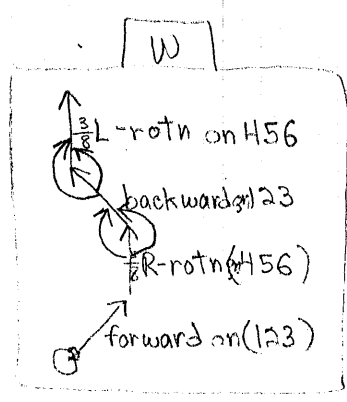 W
3/8 L-rotn on 456
backward on 123
R-rotn (on 456)
forward on (123)